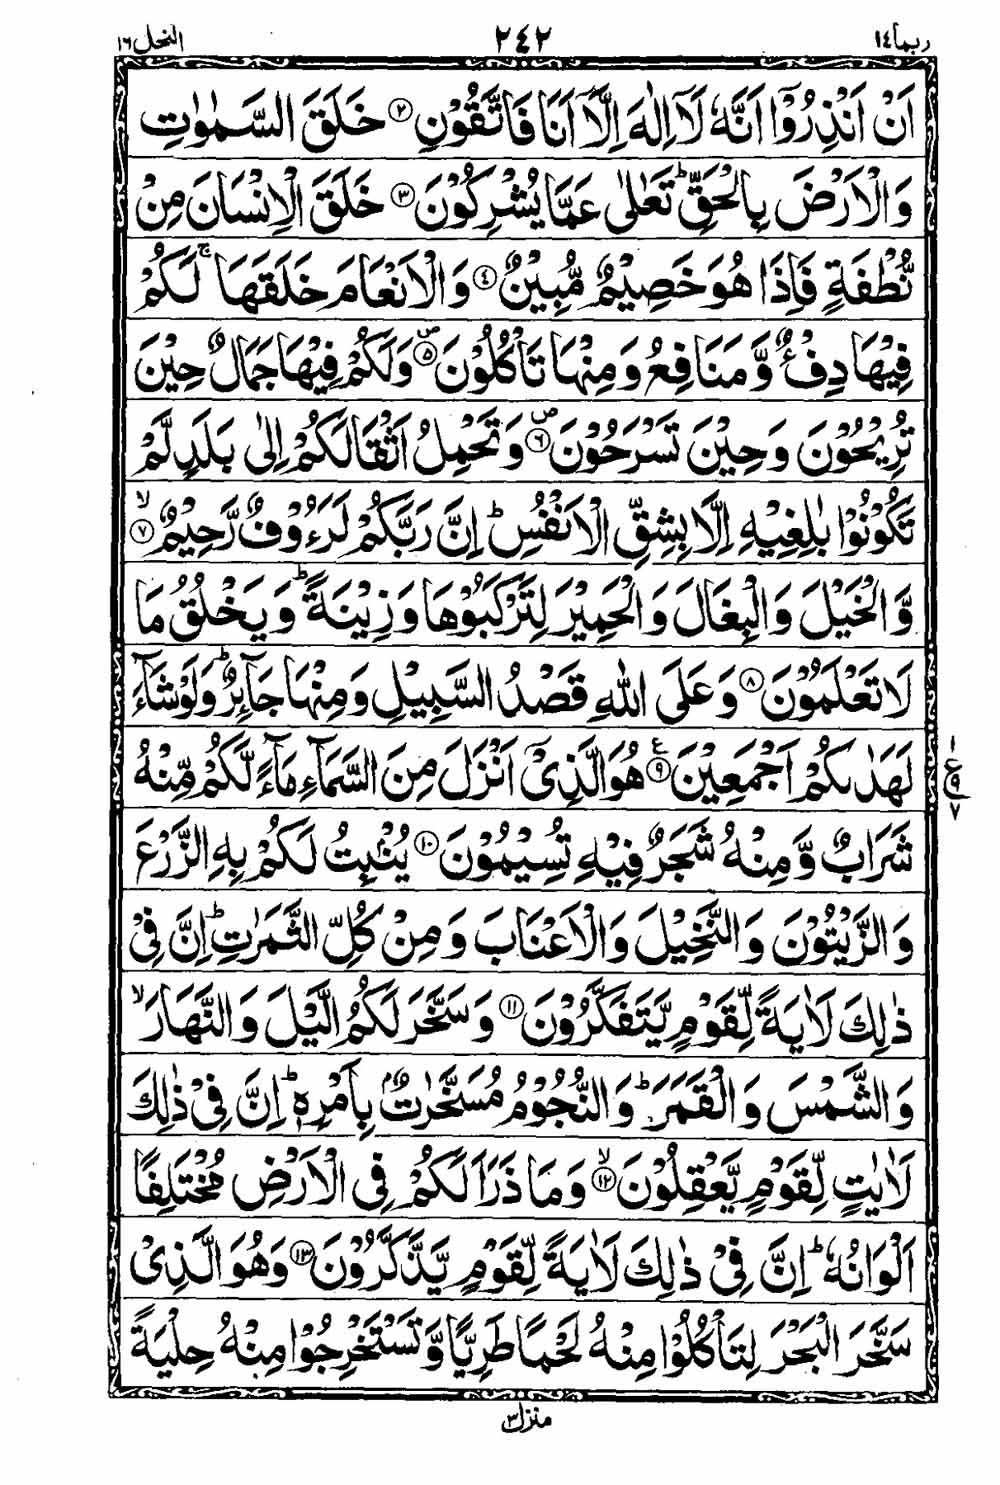 ربما ١٤
٢٤٢
النحل ١٦
اَنْ اَنْذِرُوْۤا اَنَّهٗ لَاۤ اِلٰهَ اِلَّاۤ اَنَا فَاتَّقُوْنِ ﴿٢﴾ خَلَقَ السَّمٰوٰتِ
وَالْاَرْضَ بِالْحَقِّ ؕ تَعٰلٰى عَمَّا يُشْرِكُوْنَ ﴿٣﴾ خَلَقَ الْاِنْسَانَ مِنْ
نُّطْفَةٍ فَاِذَا هُوَ خَصِيْمٌ مُّبِيْنٌ ﴿٤﴾ وَالْاَنْعَامَ خَلَقَهَا ۚ لَكُمْ
فِيْهَا دِفْءٌ وَّمَنَافِعُ وَمِنْهَا تَاْكُلُوْنَ ﴿٥﴾ۖ وَلَكُمْ فِيْهَا جَمَالٌ حِيْنَ
تُرِيْحُوْنَ وَحِيْنَ تَسْرَحُوْنَ ﴿٦﴾ۖ وَتَحْمِلُ اَثْقَالَكُمْ اِلٰى بَلَدٍ لَّمْ
تَكُوْنُوْا بٰلِغِيْهِ اِلَّا بِشِقِّ الْاَنْفُسِ ؕ اِنَّ رَبَّكُمْ لَرَءُوْفٌ رَّحِيْمٌ ﴿٧﴾ۙ
وَّالْخَيْلَ وَالْبِغَالَ وَالْحَمِيْرَ لِتَرْكَبُوْهَا وَزِيْنَةً ؕ وَيَخْلُقُ مَا
لَا تَعْلَمُوْنَ ﴿٨﴾ وَعَلَى اللّٰهِ قَصْدُ السَّبِيْلِ وَمِنْهَا جَآئِرٌ ؕ وَلَوْ شَآءَ
لَهَدٰىكُمْ اَجْمَعِيْنَ ﴿٩﴾ع هُوَ الَّذِيْۤ اَنْزَلَ مِنَ السَّمَآءِ مَآءً لَّكُمْ مِّنْهُ
١ ع ٩ ٧
شَرَابٌ وَّمِنْهُ شَجَرٌ فِيْهِ تُسِيْمُوْنَ ﴿١٠﴾ يُنْۢبِتُ لَكُمْ بِهِ الزَّرْعَ
وَالزَّيْتُوْنَ وَالنَّخِيْلَ وَالْاَعْنَابَ وَمِنْ كُلِّ الثَّمَرٰتِ ؕ اِنَّ فِيْ
ذٰلِكَ لَاٰيَةً لِّقَوْمٍ يَّتَفَكَّرُوْنَ ﴿١١﴾ وَسَخَّرَ لَكُمُ الَّيْلَ وَالنَّهَارَ ۙ
وَالشَّمْسَ وَالْقَمَرَ ؕ وَالنُّجُوْمُ مُسَخَّرٰتٌۢ بِاَمْرِهٖ ؕ اِنَّ فِيْ ذٰلِكَ
لَاٰيٰتٍ لِّقَوْمٍ يَّعْقِلُوْنَ ﴿١٢﴾ۙ وَمَا ذَرَاَ لَكُمْ فِى الْاَرْضِ مُخْتَلِفًا
اَلْوَانُهٗ ؕ اِنَّ فِيْ ذٰلِكَ لَاٰيَةً لِّقَوْمٍ يَّذَّكَّرُوْنَ ﴿١٣﴾ وَهُوَ الَّذِيْ
سَخَّرَ الْبَحْرَ لِتَاْكُلُوْا مِنْهُ لَحْمًا طَرِيًّا وَّتَسْتَخْرِجُوْا مِنْهُ حِلْيَةً
منزل ٣